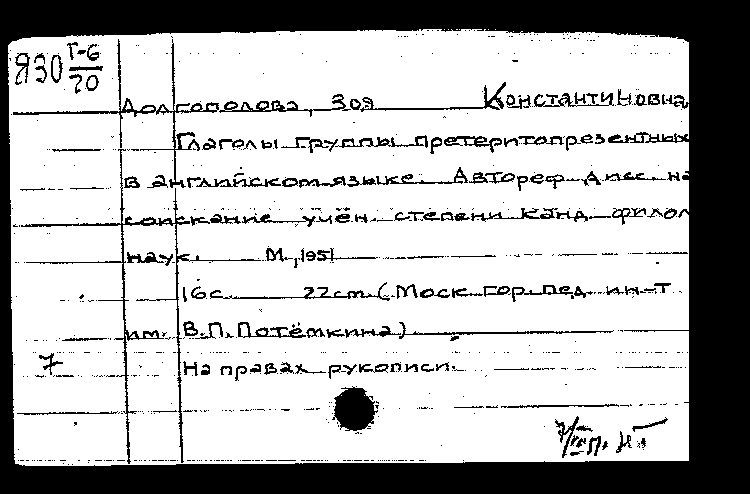 Я30 Г-6
20
Долгополова, Зоя Константиновна
Глаголы группы претеритопрезентных
в английском языке. Автореф. дисс. на
соискание учён. степени канд. филол
наук. М., 1951
16с. 22cm. (Моск. гор. пед. ин-т
им. В.П. Потёмкина)
7 На правах рукописи.